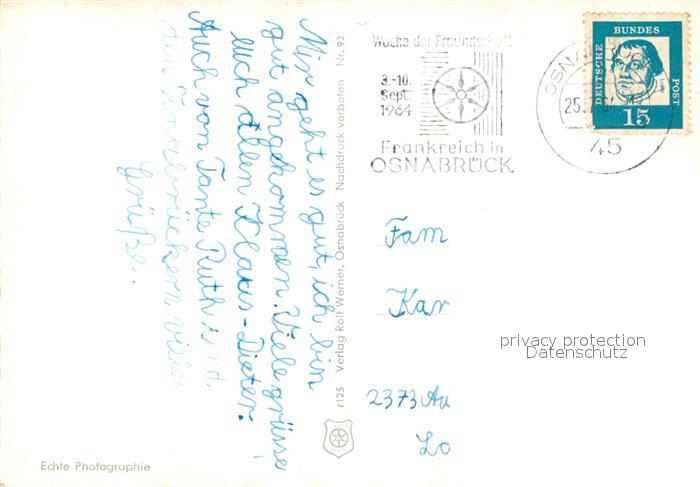 Mir geht es gut, ich bin
gut angekommen. Viele grüsse
euch allen Klaus-Dieter.
Auch von Tante Ruth und
den Innsbrückern viele
Grüße.
Echte Photographie
r125 Verlag Rolf Werner, Osnabrück Nachdruck verboten Nr. 92
Woche der Freundschaft
3.-10.
Sept.
1964
Frankreich in
OSNABRÜCK
OSNA
25.
45
DEUTSCHE
BUNDES
POST
15
Fam
Kar
2373 Au
Lo
privacy protection
Datenschutz